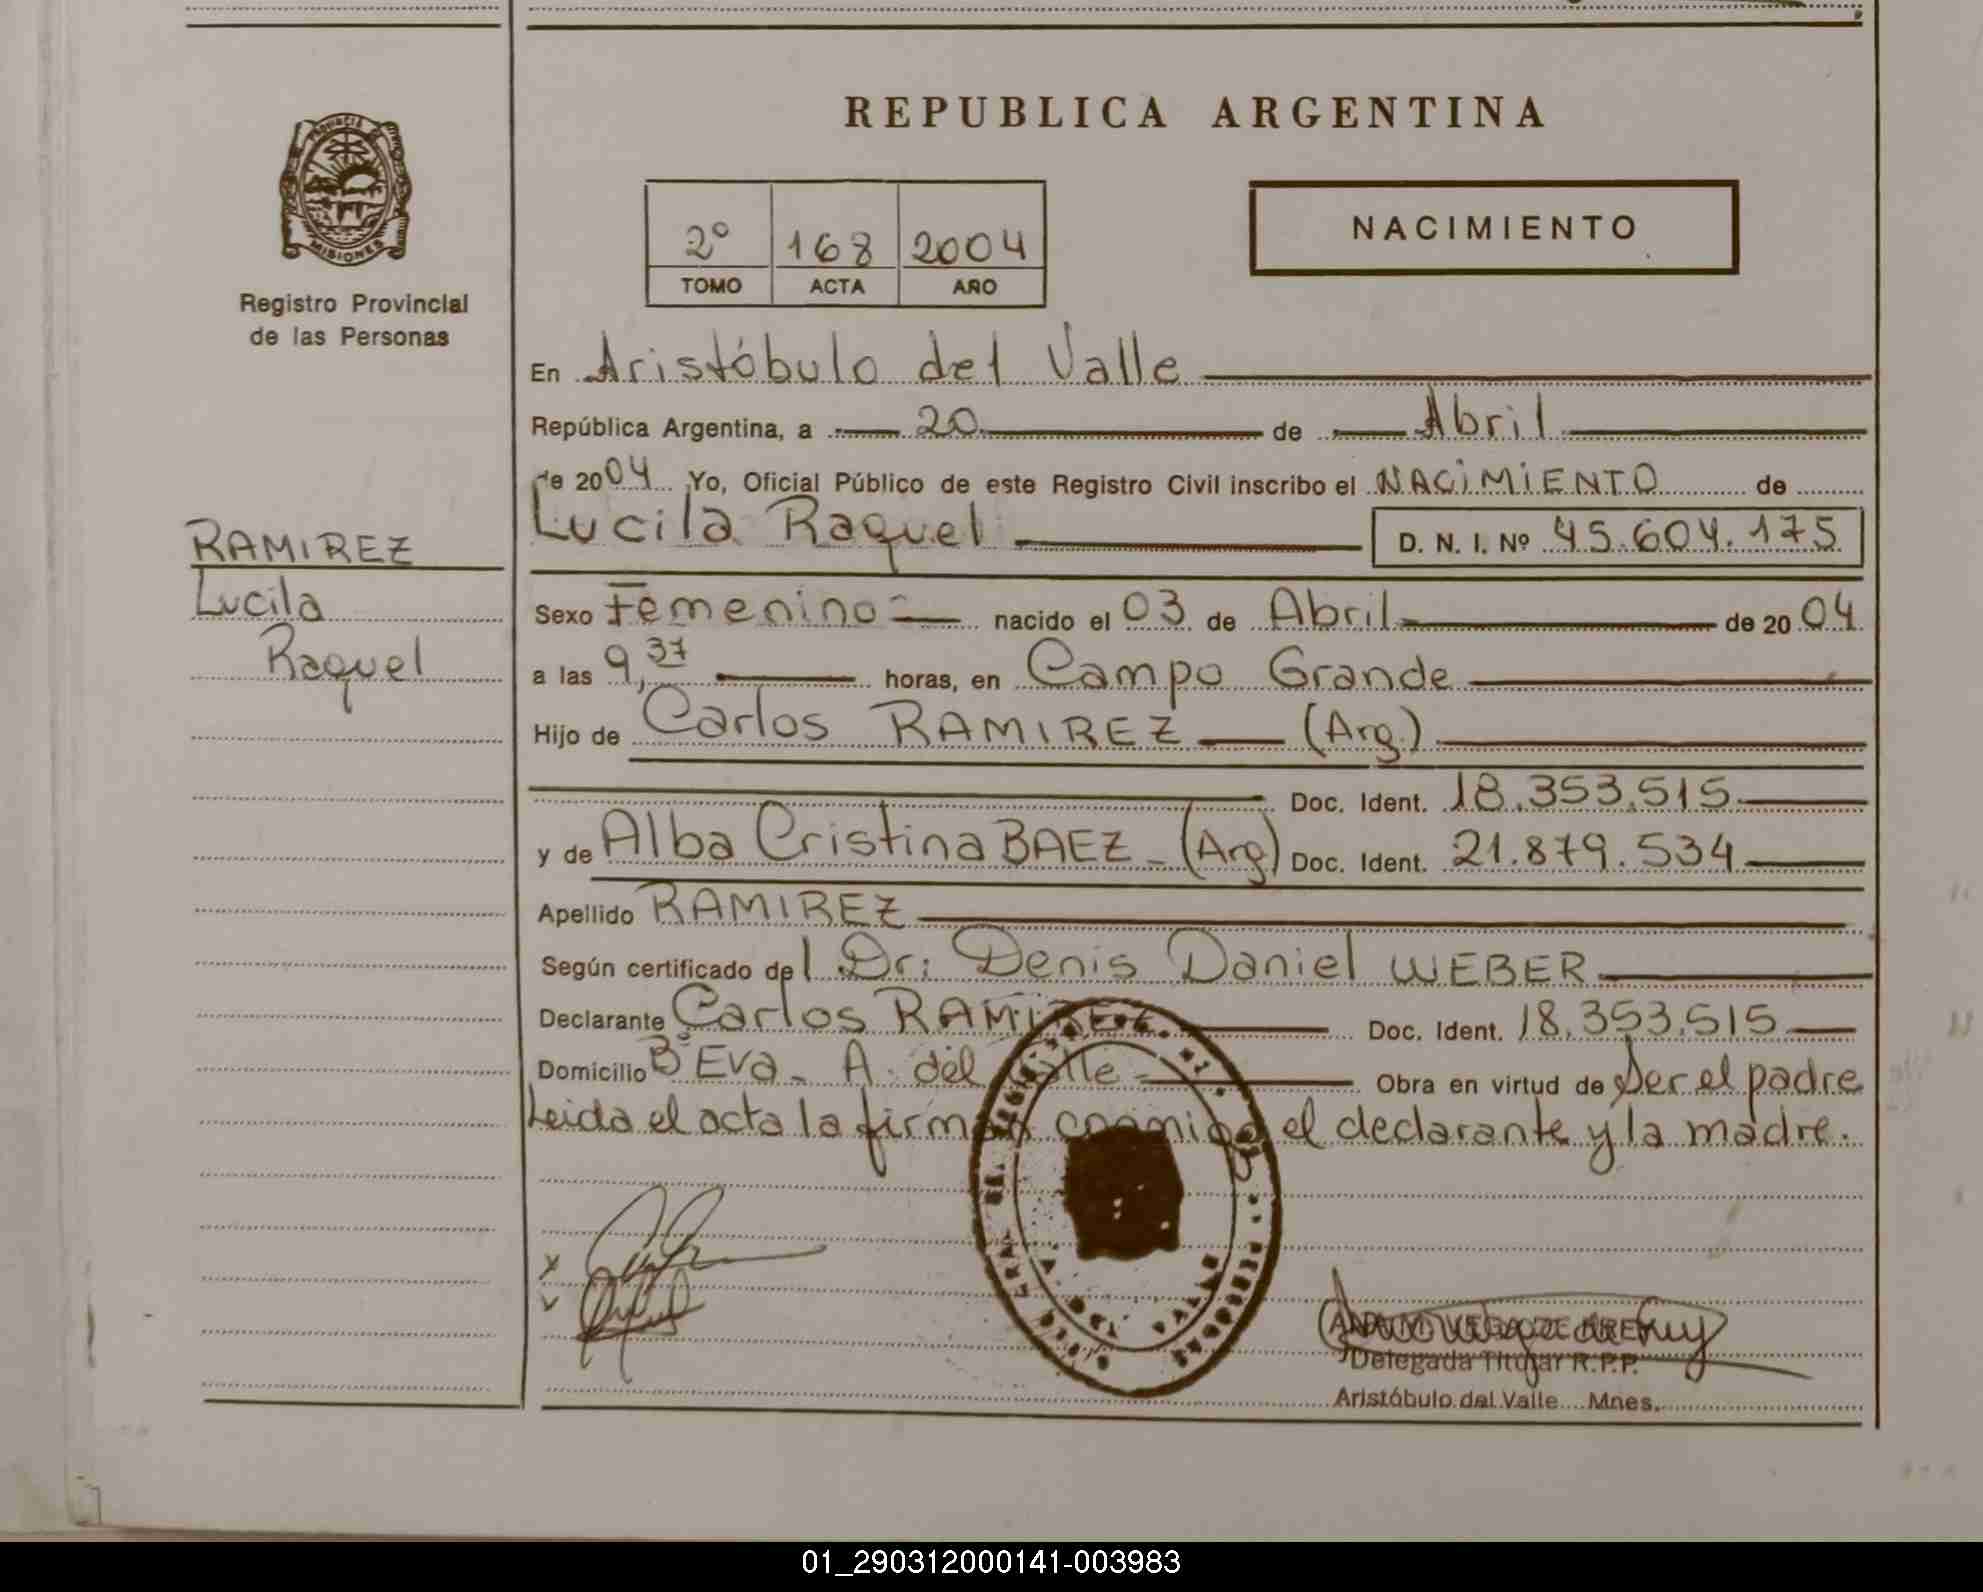 REPUBLICA ARGENTINA
PROVINCIA DE
MISIONES
Registro Provincial
de las Personas
2º 168 2004
TOMO ACTA AÑO
NACIMIENTO
En Aristóbulo del Valle
República Argentina, a 20 de Abril
de 2004 Yo, Oficial Público de este Registro Civil inscribo el NACIMIENTO de
RAMIREZ
Lucila
Raquel
Lucila Raquel D. N. I. Nº 45.604.175
Sexo Femenino nacido el 03 de Abril de 2004
a las 9,37 horas, en Campo Grande
Hijo de Carlos RAMIREZ (Arg.)
Doc. Ident. 18.353.515
y de Alba Cristina BAEZ - (Arg) Doc. Ident. 21.879.534
Apellido RAMIREZ
Según certificado del Dr: Denis Daniel WEBER
Declarante Carlos RAMIREZ Doc. Ident. 18.353.515
Domicilio Bº Eva - A. del Valle - Obra en virtud de Ser el padre
Leida el acta la firman conmigo el declarante y la madre.
Delegada Titular R.P.P.
Aristóbulo del Valle Mnes.
01_290312000141-003983